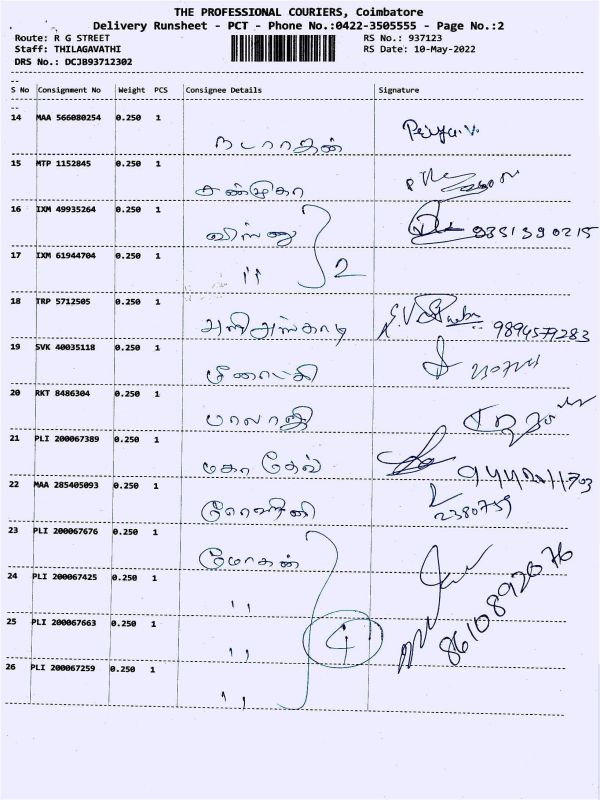 THE PROFESSIONAL COURIERS, Coimbatore
Delivery Runsheet - PCT - Phone No.:0422-3505555 - Page No.:2
Route: R G STREET
RS No.: 937123
Staff: THILAGAVATHI
RS Date: 10-May-2022
DRS No.: DCJB93712302
--
S No Consignment No Weight PCS Consignee Details Signature
--
14 MAA 566080254 0.250 1
நடராஜன் Priya.V.
15 MTP 1152845 0.250 1
சண்முகா
16 IXM 49935264 0.250 1
விஸ்னு
17 IXM 61944704 0.250 1
" 2
18 TRP 5712505 0.250 1
S.V 9894579283
19 SVK 40035118 0.250 1
மீனாட்சி
20 RKT 8486304 0.250 1
பாலாஜி
21 PLI 200067389 0.250 1
மகாதேவ்
22 MAA 285405093 0.250 1
2380759
23 PLI 200067676 0.250 1
மோகன்
24 PLI 200067425 0.250 1
"
8610892076
25 PLI 200067663 0.250 1
" 4
26 PLI 200067259 0.250 1
"